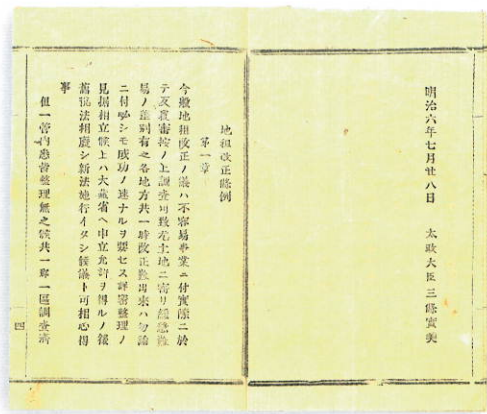 明治六年七月廿八日　太政大臣三條實美
地租改正條例
第一章
今般地租改正ノ儀ハ不容易事業ニ付實際ニ於
テ反覆審按ノ上調査可致尤土地ニ寄リ緩急難
易ノ差別有之各地方共一時改正難出來ハ勿論
ニ付必シモ成功ノ速ナルヲ要セス詳密整理ノ
見据相立候上ハ大藏省ヘ申立允許ヲ得ルノ後
舊稅法相廢シ新法施行イタシ候儀ト可相心得
事
但一管內悉皆整理無之候共一郡一區調査濟
四